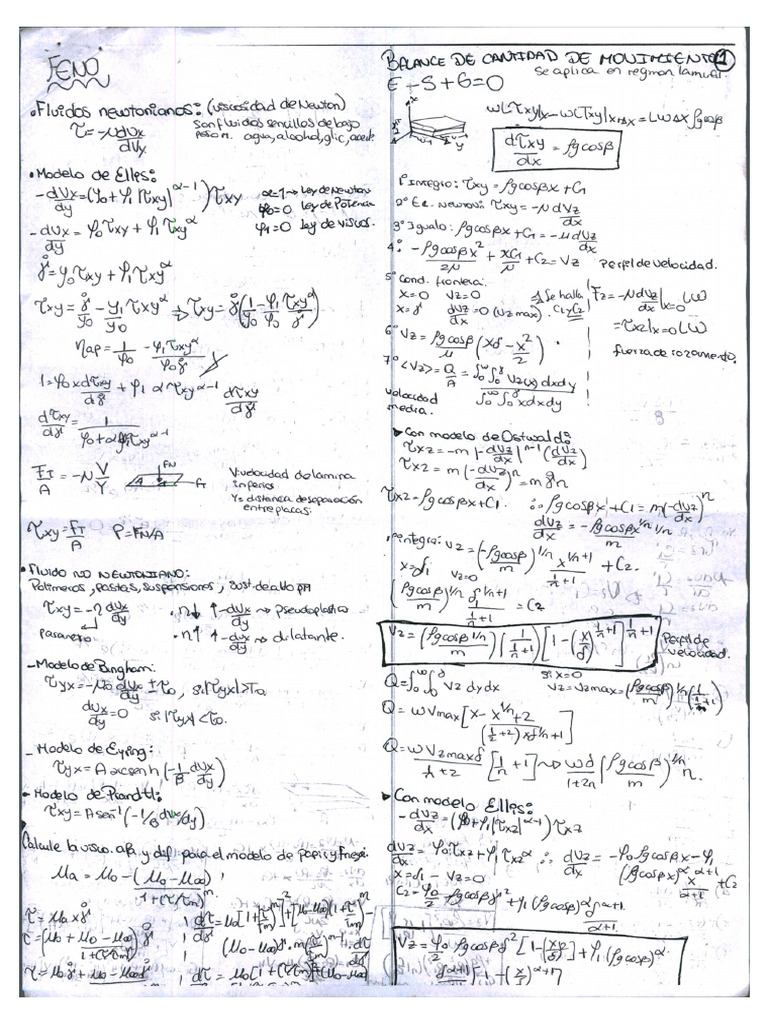 FENO
• Fluidos newtonianos: (viscosidad de Newton)
τ = -μ dVx/dVy
Son fluidos sencillos de bajo
peso m. agua, alcohol, glic,
• Modelo de Elles:
-dVx/dy = (φ0 + φ1 |τxy|^α-1) τxy
α=1 → Ley de Newton
φ0=0 Ley de Potencia
φ1=0 Ley de viscos.
-dVx/dy = φ0 τxy + φ1 τxy^α
γ° = φ0 τxy + φ1 τxy^α
τxy = γ°/φ0 - φ1/φ0 τxy^α ⇒ τxy = γ° (1/φ0 - φ1/φ0 τxy^α/γ°)
ηap = 1/φ0 - φ1 τxy^α/φ0 γ°
1 = φ0 x dτxy/dγ° + φ1 α τxy^α-1 dτxy/dγ°
dτxy/dγ° = 1/φ0 + αφ1 τxy^α-1
FT/A = -μ V/Y
FN
FT
A
V: velocidad de lamina
inferior
Y = distancia de separación
entre placas.
τxy = FT/A P = FN/A
• FLUIDO NO NEWTONIANO:
Polimeros, pastas, suspensiones, sust. de alto PM
τxy = -η dVx/dy
• n↓ ↑ -dVx/dy → pseudoplastico
• n↑ ↑ -dVx/dy → dilatante.
- Modelo de Bingham:
τyx = -μ0 dVx/dy ± τ0, si |τyx| > τ0
dVx/dy = 0 si |τyx| < τ0.
- Modelo de Eyring:
τyx = A arcsenh (-1/B dVx/dy)
- Modelo de Prandtl:
τxy = A sen⁻¹ (-1/B dVx/dy)
Calcule la visco. ap. y dif. para el modelo de
μa = μ0 - (μ0 - μ∞)/1+(τ/τm)^m
τ = μa x γ°
BALANCE DE CANTIDAD DE MOVIMIENTO 1
Se aplica en regimen laminar.
E - S + G = 0
WL τxy|x - WL τxy|x+Δx = LWΔx ρg cosβ
dτxy/dx = ρg cosβ
1° Integro: τxy = ρg cosβ x + C1
2° Ec. Newton: τxy = -μ dVz/dx
3° Igualo: ρg cosβ x + C1 = -μ dVz/dx
4° -ρg cosβ x²/2μ + xC1/μ + C2 = Vz Perfil de velocidad.
5° Cond. frontera:
x=0 Vz=0
x=δ dVz/dx=0 (Vz max).
Se halla C1 y C2
Fz = -μ dVz/dx|x=0 LW
= τxz|x=0 LW
fuerza de rozamiento.
6° Vz = ρg cosβ/μ (xδ - x²/2)
7° <Vz> = Q/A = ∫0^w∫0^δ Vz(x) dx dy / ∫0^w∫0^δ x dx dy
velocidad
media.
► Con modelo de Ostwald:
τxz = -m |-dVz/dx|^n-1 (dVz/dx)
τxz = m (-dVz/dx)^n = m γ° n
τxz = ρg cosβ x + C1. ∴ ρg cosβ x + C1 = m (-dVz/dx)^n
dVz/dx = -ρg cosβ x^1/n / m ^1/n
integra: Vz = (-ρg cosβ/m)^1/n x^1/n+1 / 1/n+1 + C2.
x=δ Vz=0
(ρg cosβ/m)^1/n δ^1/n+1 / 1/n+1 = C2
Vz = (ρg cosβ/m)^1/n (1/1/n+1) [1 - (x/δ)^1/n+1]^1/n+1
Perfil de
velocidad.
Q = ∫0^w∫0^δ Vz dy dx
si x=0
Vz = Vz max = (ρg cosβ/m)^1/n (1/1/n+1)
Q = W Vmax [x - x^1/n+2 / (1/n+2) x δ^1/n+1]
Q = W Vz max δ / 1/n+2 [1/n + 1] → Wδ/1+2n (ρg cosβ/m)^1/n n.
► Con modelo Elles:
-dVz/dx = (φ0 + φ1 |τxz|^α-1) τxz
dVz/dx = φ0 τxz + φ1 τxz^α ∴ dVz/dx = -φ0 ρg cosβ x - φ1 (ρg cosβ)^α x^α+1/α+1 + C2
x=δ → Vz=0
C2 = φ0/2 ρg cosβ δ² + φ1 (ρg cosβ)^α δ^α+1/α+1
Vz = φ0/2 ρg cosβ δ² [1 - (x/δ)²] + φ1 (ρg cosβ)^α
δ^α+1/α+1 [1 - (x/δ)^α+1]